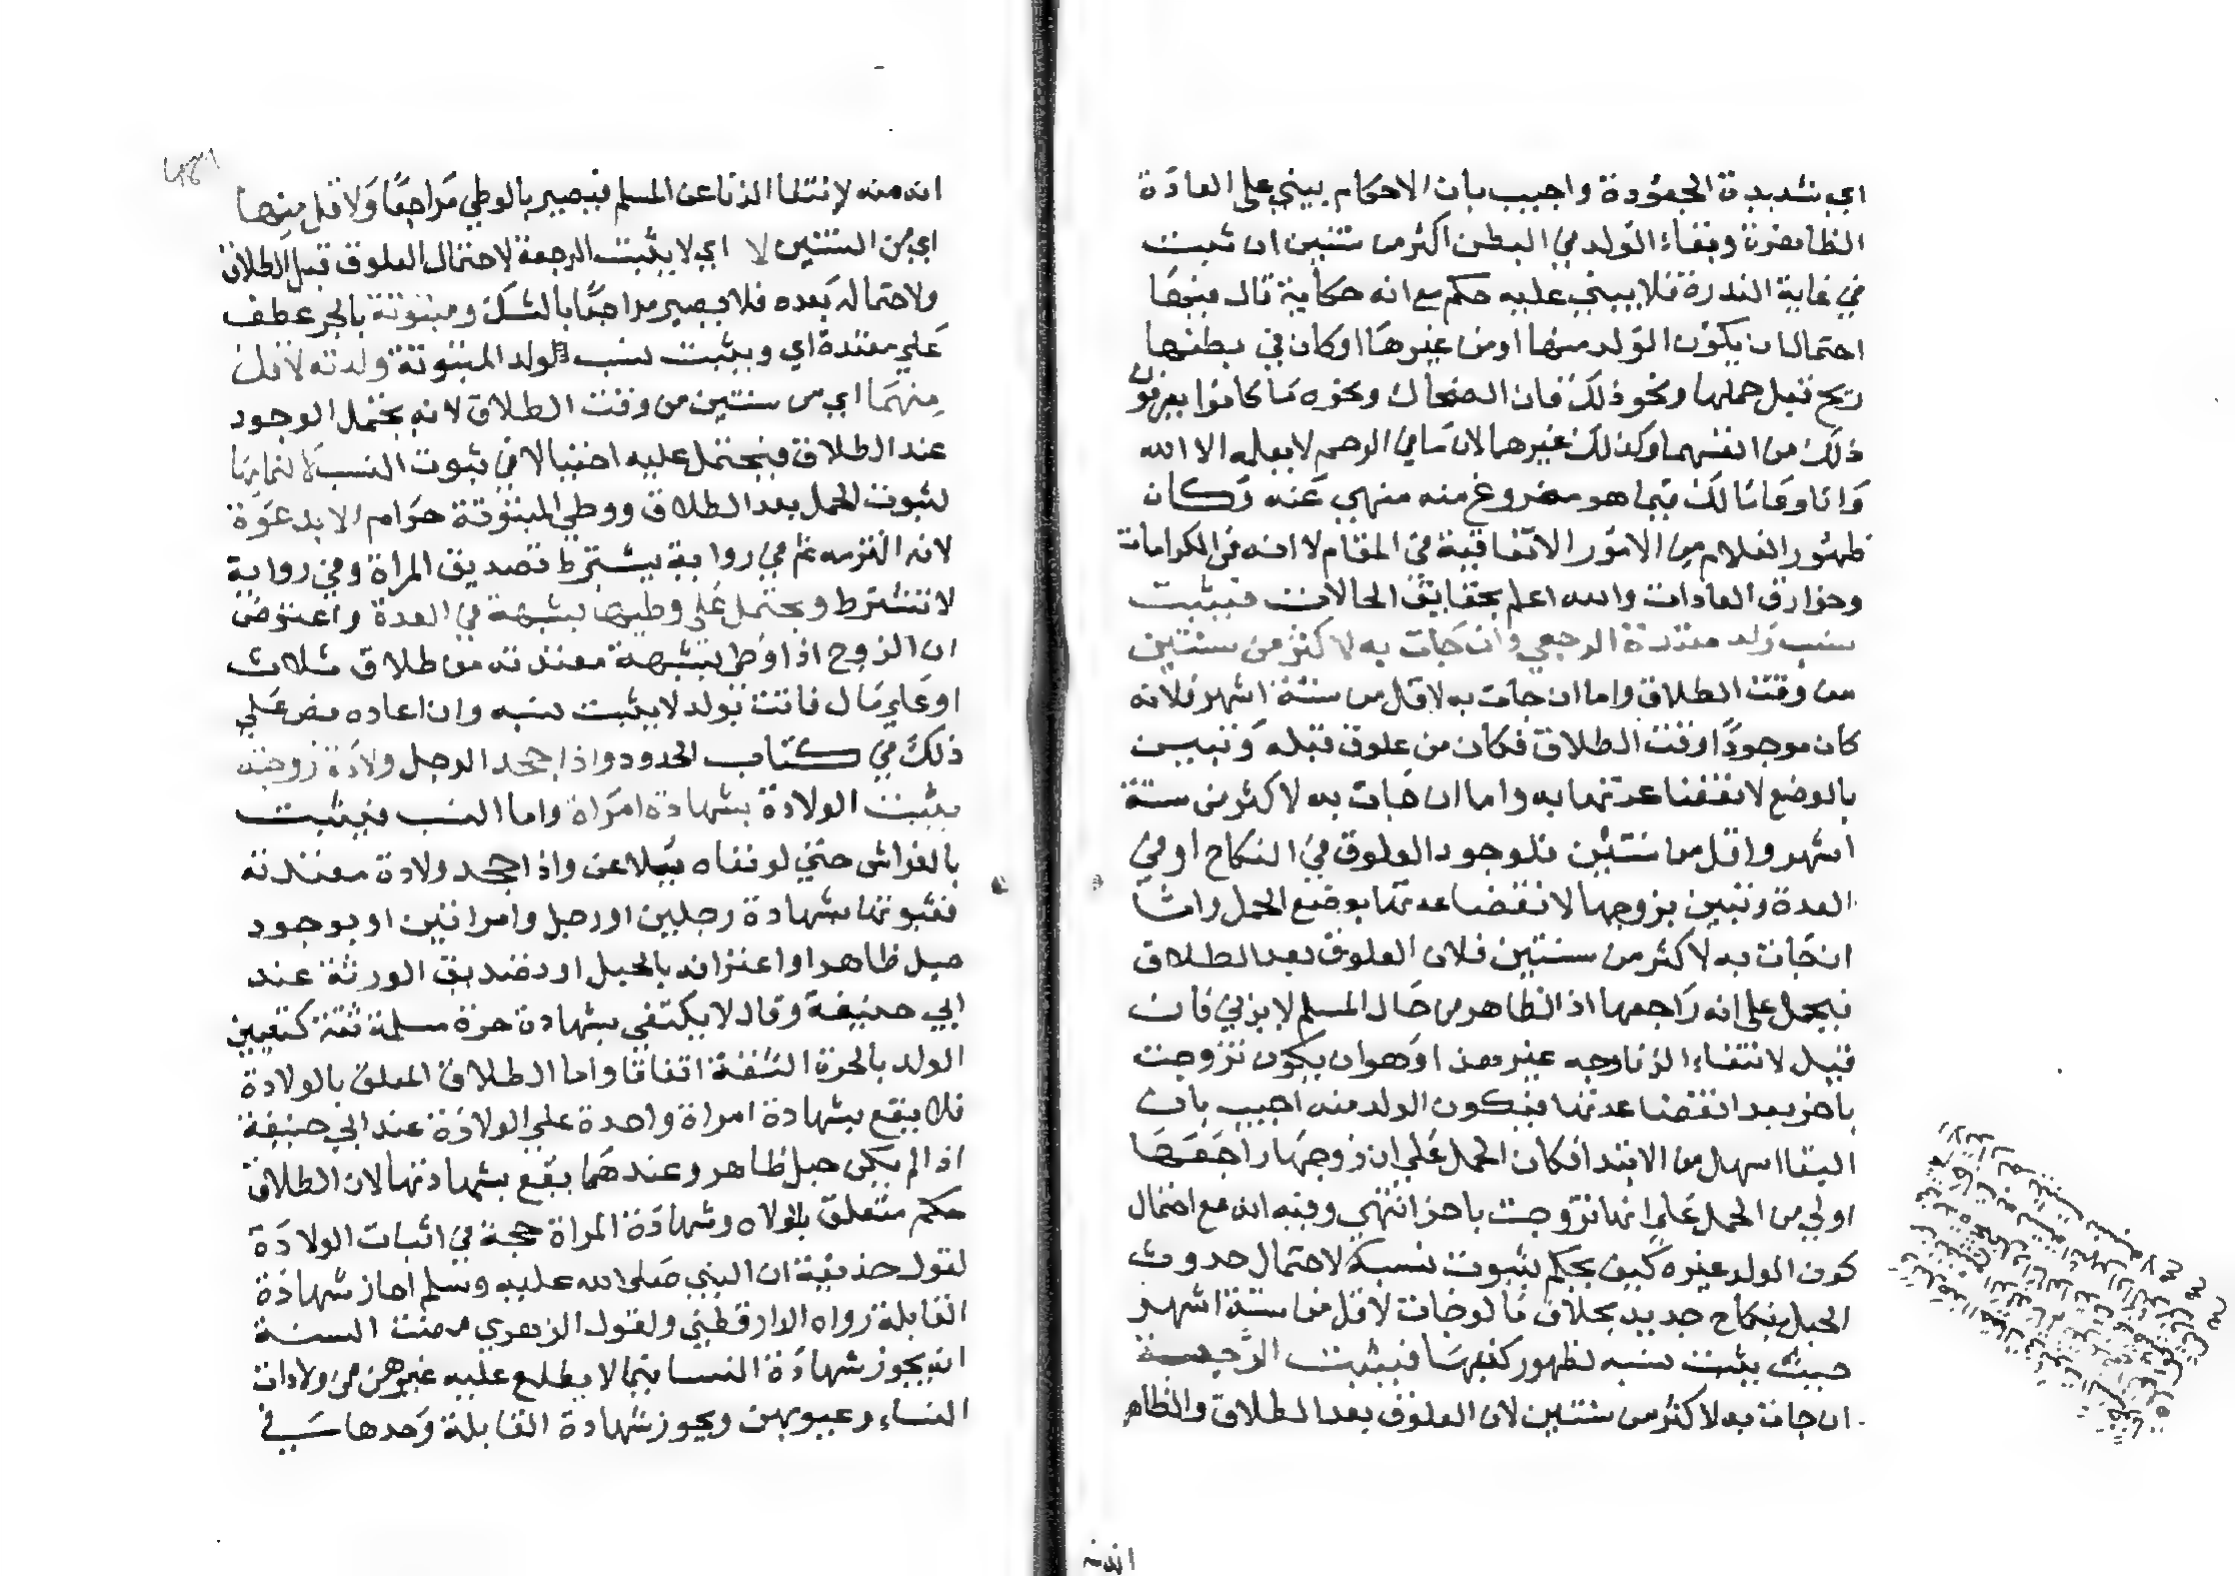 اي شديدة الجعودة واجيب بان الاحكام يبني على العادة
الظاهرة وبقاء الولد في البطن اكثر من سنتين ان ثبت
في غاية الندرة فلا يبني عليه حكم مع انه حكاية قال فيها
احتمالات يكون الولد منها او من غيرها او كان في بطنها
ريح قبل حملها ونحو ذلك فان الضحاك ونحوه ما كانوا يعرفون
ذلك من انفسهما وكذلك غيرهما لان ما في الرحم لا يعلمه الا الله
هو مفروغ منه منهي عنه وكان
ظهور الغلام من الامور الاتفاقية في المقام لا انه من الكرامات
وخوارق العادات والله اعلم بحقايق الحالات فيثبت
نسب ولد معتدة الرجعي وان جات به لاكثر من سنتين
من وقت الطلاق واما ان جات به لاقل من ستة اشهر فلانه
كان موجودا وقت الطلاق فكان من علوق قبله وتبين
بالوضع لانقضا عدتها به واما ان جات به لاكثر من ستة
اشهر واقل من سنتين فلوجود العلوق في النكاح او في
العدة وتبين بزوجها لانقضا عدتها بوضع الحمل واما
ان جات به لاكثر من سنتين فلان العلوق بعد الطلاق
فيحمل على انه راجعها اذ الظاهر من حال المسلم لا يزني فان
قيل لانتفاء الزنا وجه غير هذا وهو ان يكون تزوجت
باخر بعد انقضا عدتها فيكون الولد منه اجيب بان
البقا اسهل من الابتدا فكان الحمل على ان زوجها راجعها
اولي من الحمل على انها تزوجت باخر انتهي وفيه انه مع احتمال
كون الولد غيره كيف يحكم بثبوت نسبه لاحتمال حدوث
الحبل بنكاح جديد بخلاف ما لو جات لاقل من ستة اشهر
حيث يثبت نسبه لظهور فيثبت الرجعة
ان جات به لاكثر من سنتين لان العلوق بعد الطلاق والظاهر
انه منه
انه منه لانتفا الزنا عن المسلم فيصير بالوطي مراجعا ولاقل منها
اي من السنتين لا اي لا يثبت الرجعة لاحتمال العلوق قبل الطلاق
ولاحتماله بعده فلا يصير مراجعا بالشك ومبتوتة بالجر عطف
علي معتدة اي ويثبت نسب ولد المبتوتة ولدته لاقل
منهما اي من سنتين من وقت الطلاق لانه يحتمل الوجود
عند الطلاق فيحتمل عليه احتيالا في ثبوت النسب لا لتمامها
لثبوت الحمل بعد الطلاق ووطي المبتوتة حرام الا بدعوة
لانه التزمه ثم في رواية يشترط تصديق المراة وفي رواية
لا تشترط ويحتمل علي وطيها بشبهة في العدة واعترض
ان الزوج اذا وطي بشبهة معتدته من طلاق ثلاث
او علي مال فاتت بولد لا يثبت نسبه وان اعاده نص علي
ذلك في كتاب الحدود واذا جحد الرجل ولادة زوجته
يثبت الولادة بشهادة امراة واما النسب فيثبت
بالفراش حتي لو نفاه يلاعن واذا جحد ولادة معتدته
فثبوتها بشهادة رجلين او رجل وامراتين او بوجود
حبل ظاهر او اعترافه بالحبل او تصديق الورثة عند
ابي حنيفة وقالا يكتفي بشهادة حرة مسلمة ثقة كتعيين
الولد بالحرة الثقة اتفاقا واما الطلاق المعلق بالولادة
فلا يقع بشهادة امراة واحدة علي الولادة عند ابي حنيفة
اذا لم يكن حبل ظاهر وعندهما يقع بشهادتها لان الطلاق
حكم متعلق بالولاه وشهادة المراة حجة في اثبات الولادة
لقول حذيفة ان النبي صلى الله عليه وسلم اجاز شهادة
القابلة رواه الدارقطني ولقول الزهري مضت السنة
انه يجوز شهادة النسا فيما لا يطلع عليه غيرهن من ولادات
النساء وعيوبهن ويجوز شهادة القابلة وحدها في